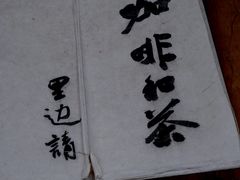 咖啡和茶
里边請